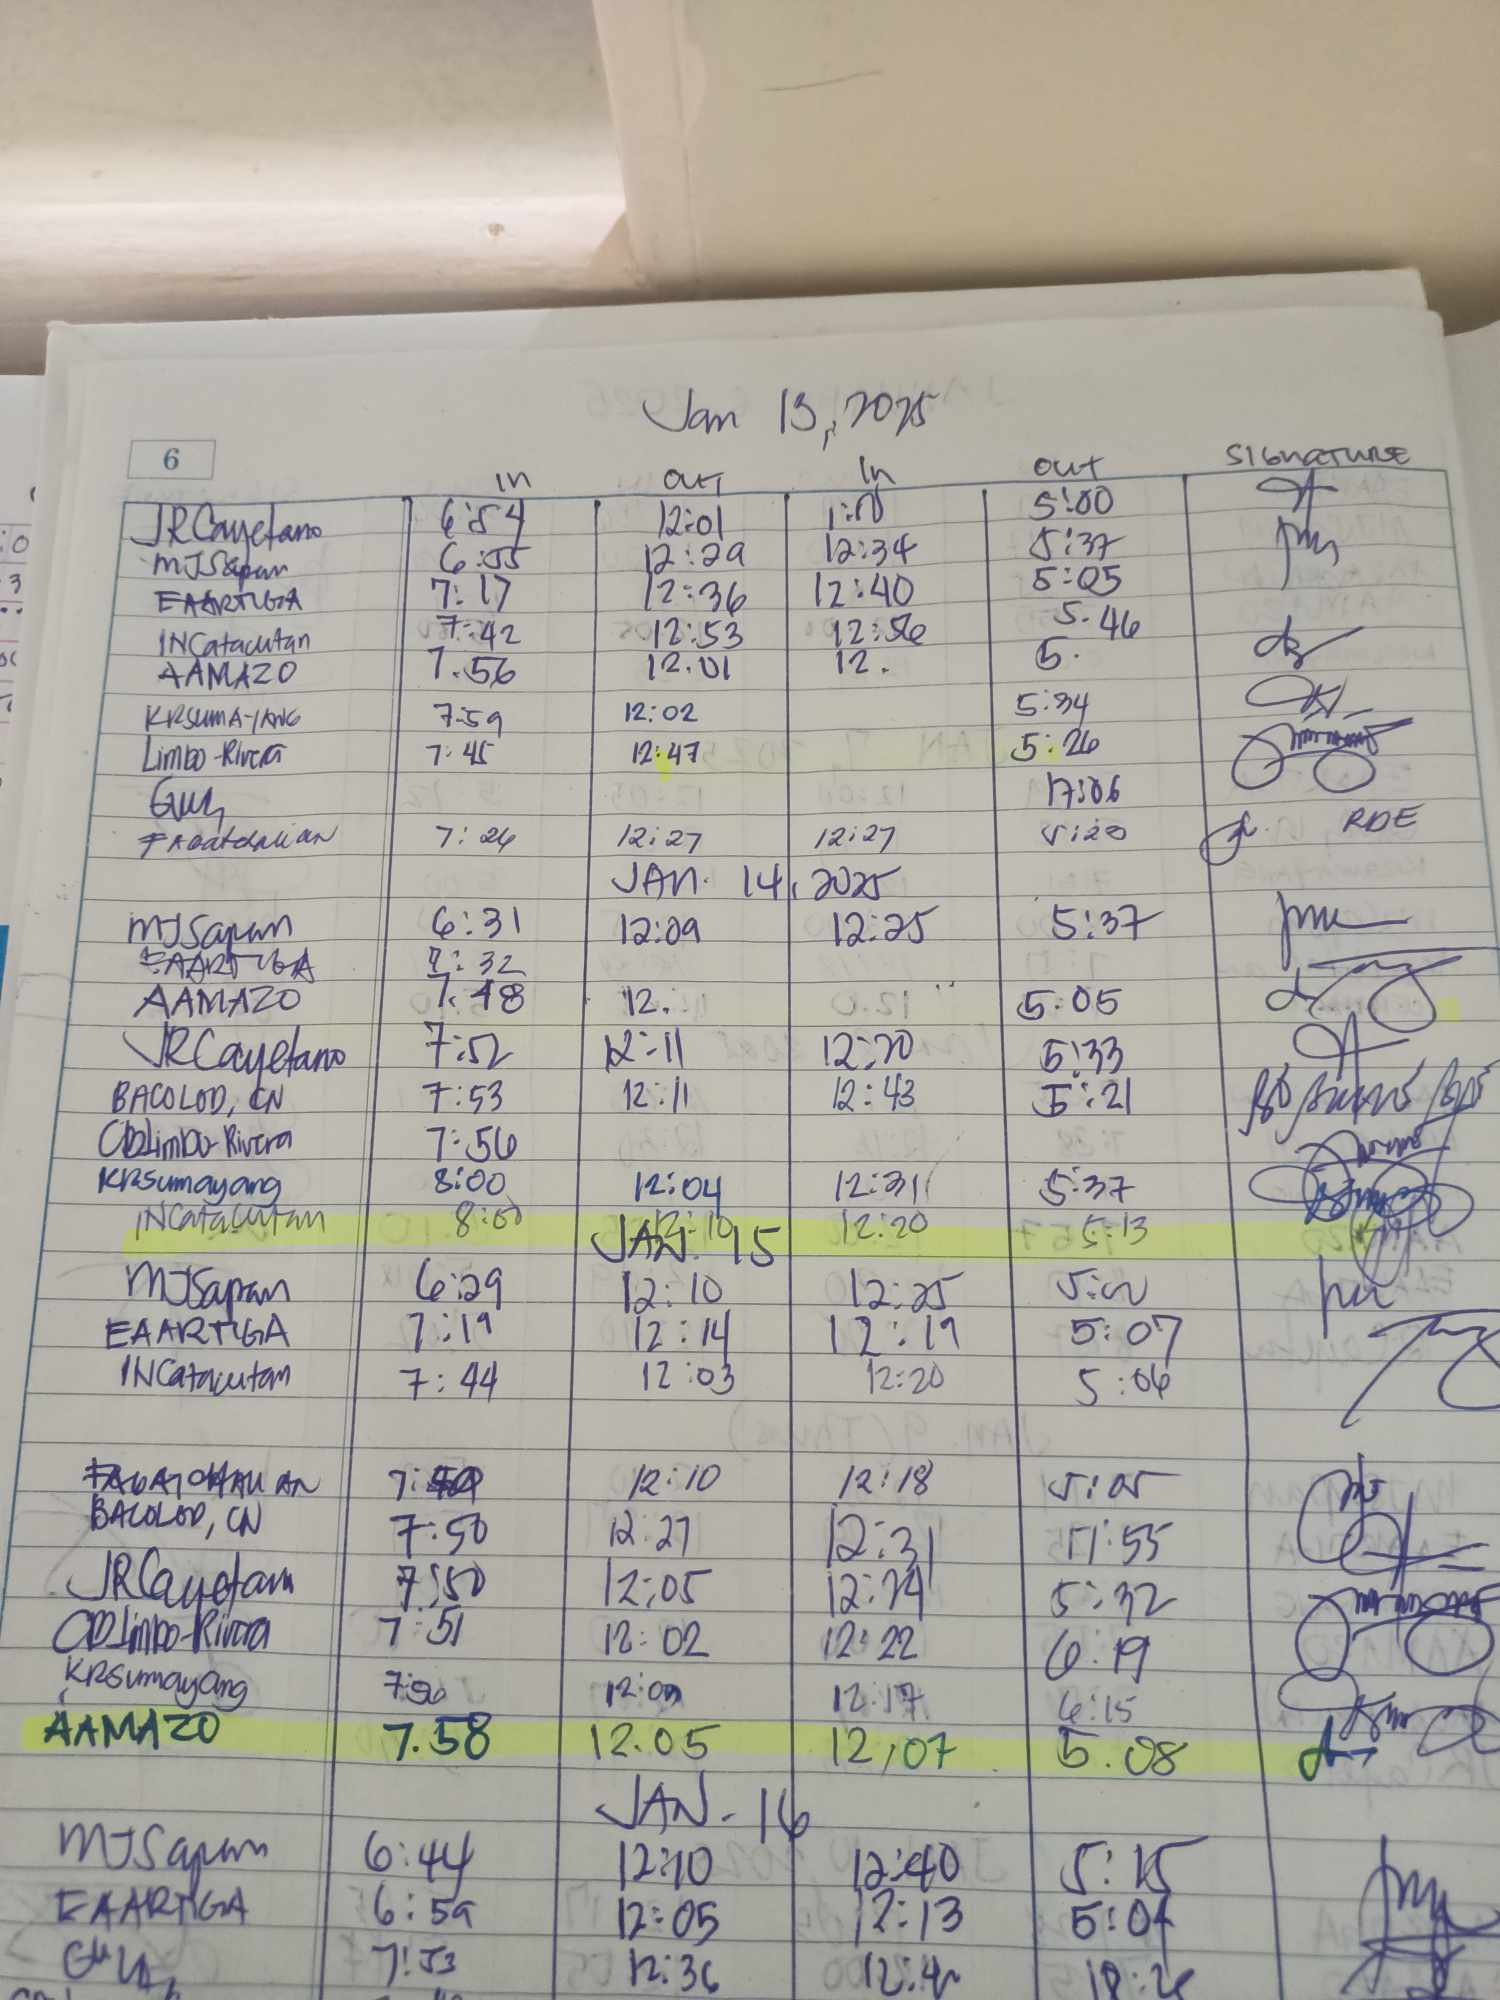 Jan 13, 2025
6
In OUT In OUT SIGNATURE
JRCayetano 6:54 12:01 5:00
MJSapan 6:55 12:29 12:34 5:37
EAARTIGA 7:17 12:36 12:40 5:05
INCatacutan 7:42 12:53 12:56 5.46
AAMAZO 7.56 12.01 12. 5.
KRSUMAYANG 7:59 12:02 5:34
Limbo-Rivera 7:45 12:47 5:26
17:06
7:26 12:27 12:27 5:20 RDE
JAN. 14, 2025
MJSapan 6:31 12:09 12:25 5:37
EAARTIGA 7:32
AAMAZO 7.48 12. 5.05
JRCayetano 7:52 12:11 12:20 5:33
BACOLOD, CN 7:53 12:11 12:43 5:21
CDLimbo-Rivera 7:56
KRSumayang 8:00 12:04 12:31 5:37
INCatacutan 8:00 12:10 12:20 5:13
JAN. 15
MJSapan 6:29 12:10 12:25
EAARTIGA 7:19 12:14 12:19 5:07
INCatacutan 7:44 12:03 12:20 5:06
12:10 12:18 5:05
BACOLOD, CN 7:50 12:27 12:31 17:55
JRCayetano 7:50 12:05 12:24 5:32
CDLimbo-Rivera 7:51 12:02 12:22 6:19
KRSumayang 12:17 6:15
AAMAZO 7.58 12.05 12,07 5.08
JAN. 16
MJSapan 6:44 12:10 12:40 5:15
EAARTIGA 6:59 12:05 12:13
7:53 12:36